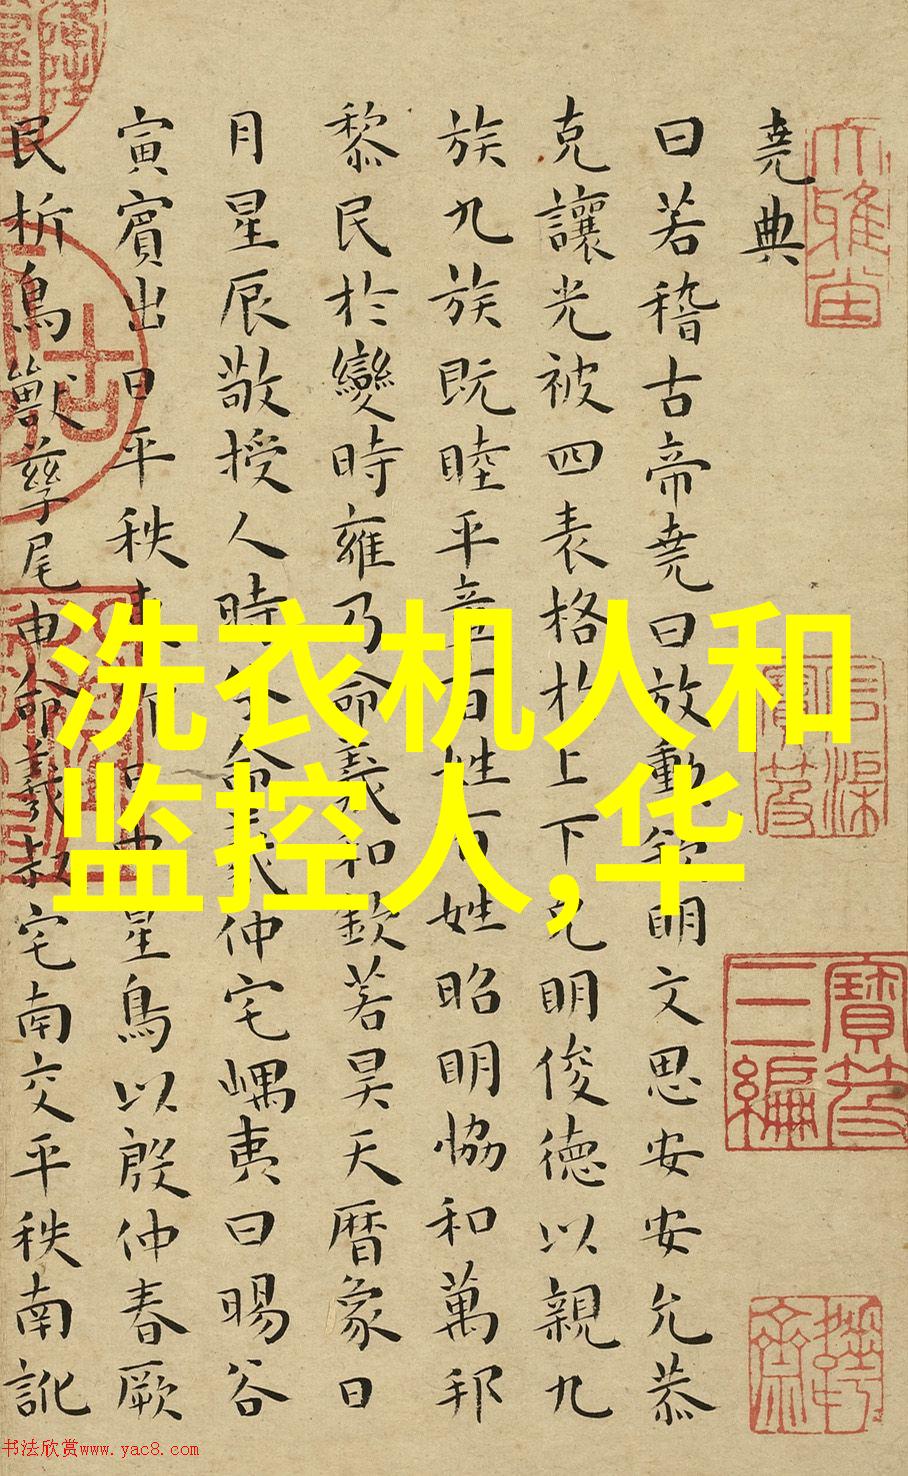 堯典
曰若稽古帝堯曰放勳欽明文思安安允恭
克讓光被四表格於上下克明俊德以親九
族九族既睦平章百姓百姓昭明協和萬邦
黎民於變時雍乃命羲和欽若昊天曆象日
月星辰敬授人時分命羲仲宅嵎夷曰暘谷
寅賓出日平秩東作日中星鳥以殷仲春厥
民析鳥獸孳尾申命羲叔宅南交平秩南訛
洗衣机人和
监控人,华
寶笈
三編
书法欣赏www.yac8.com